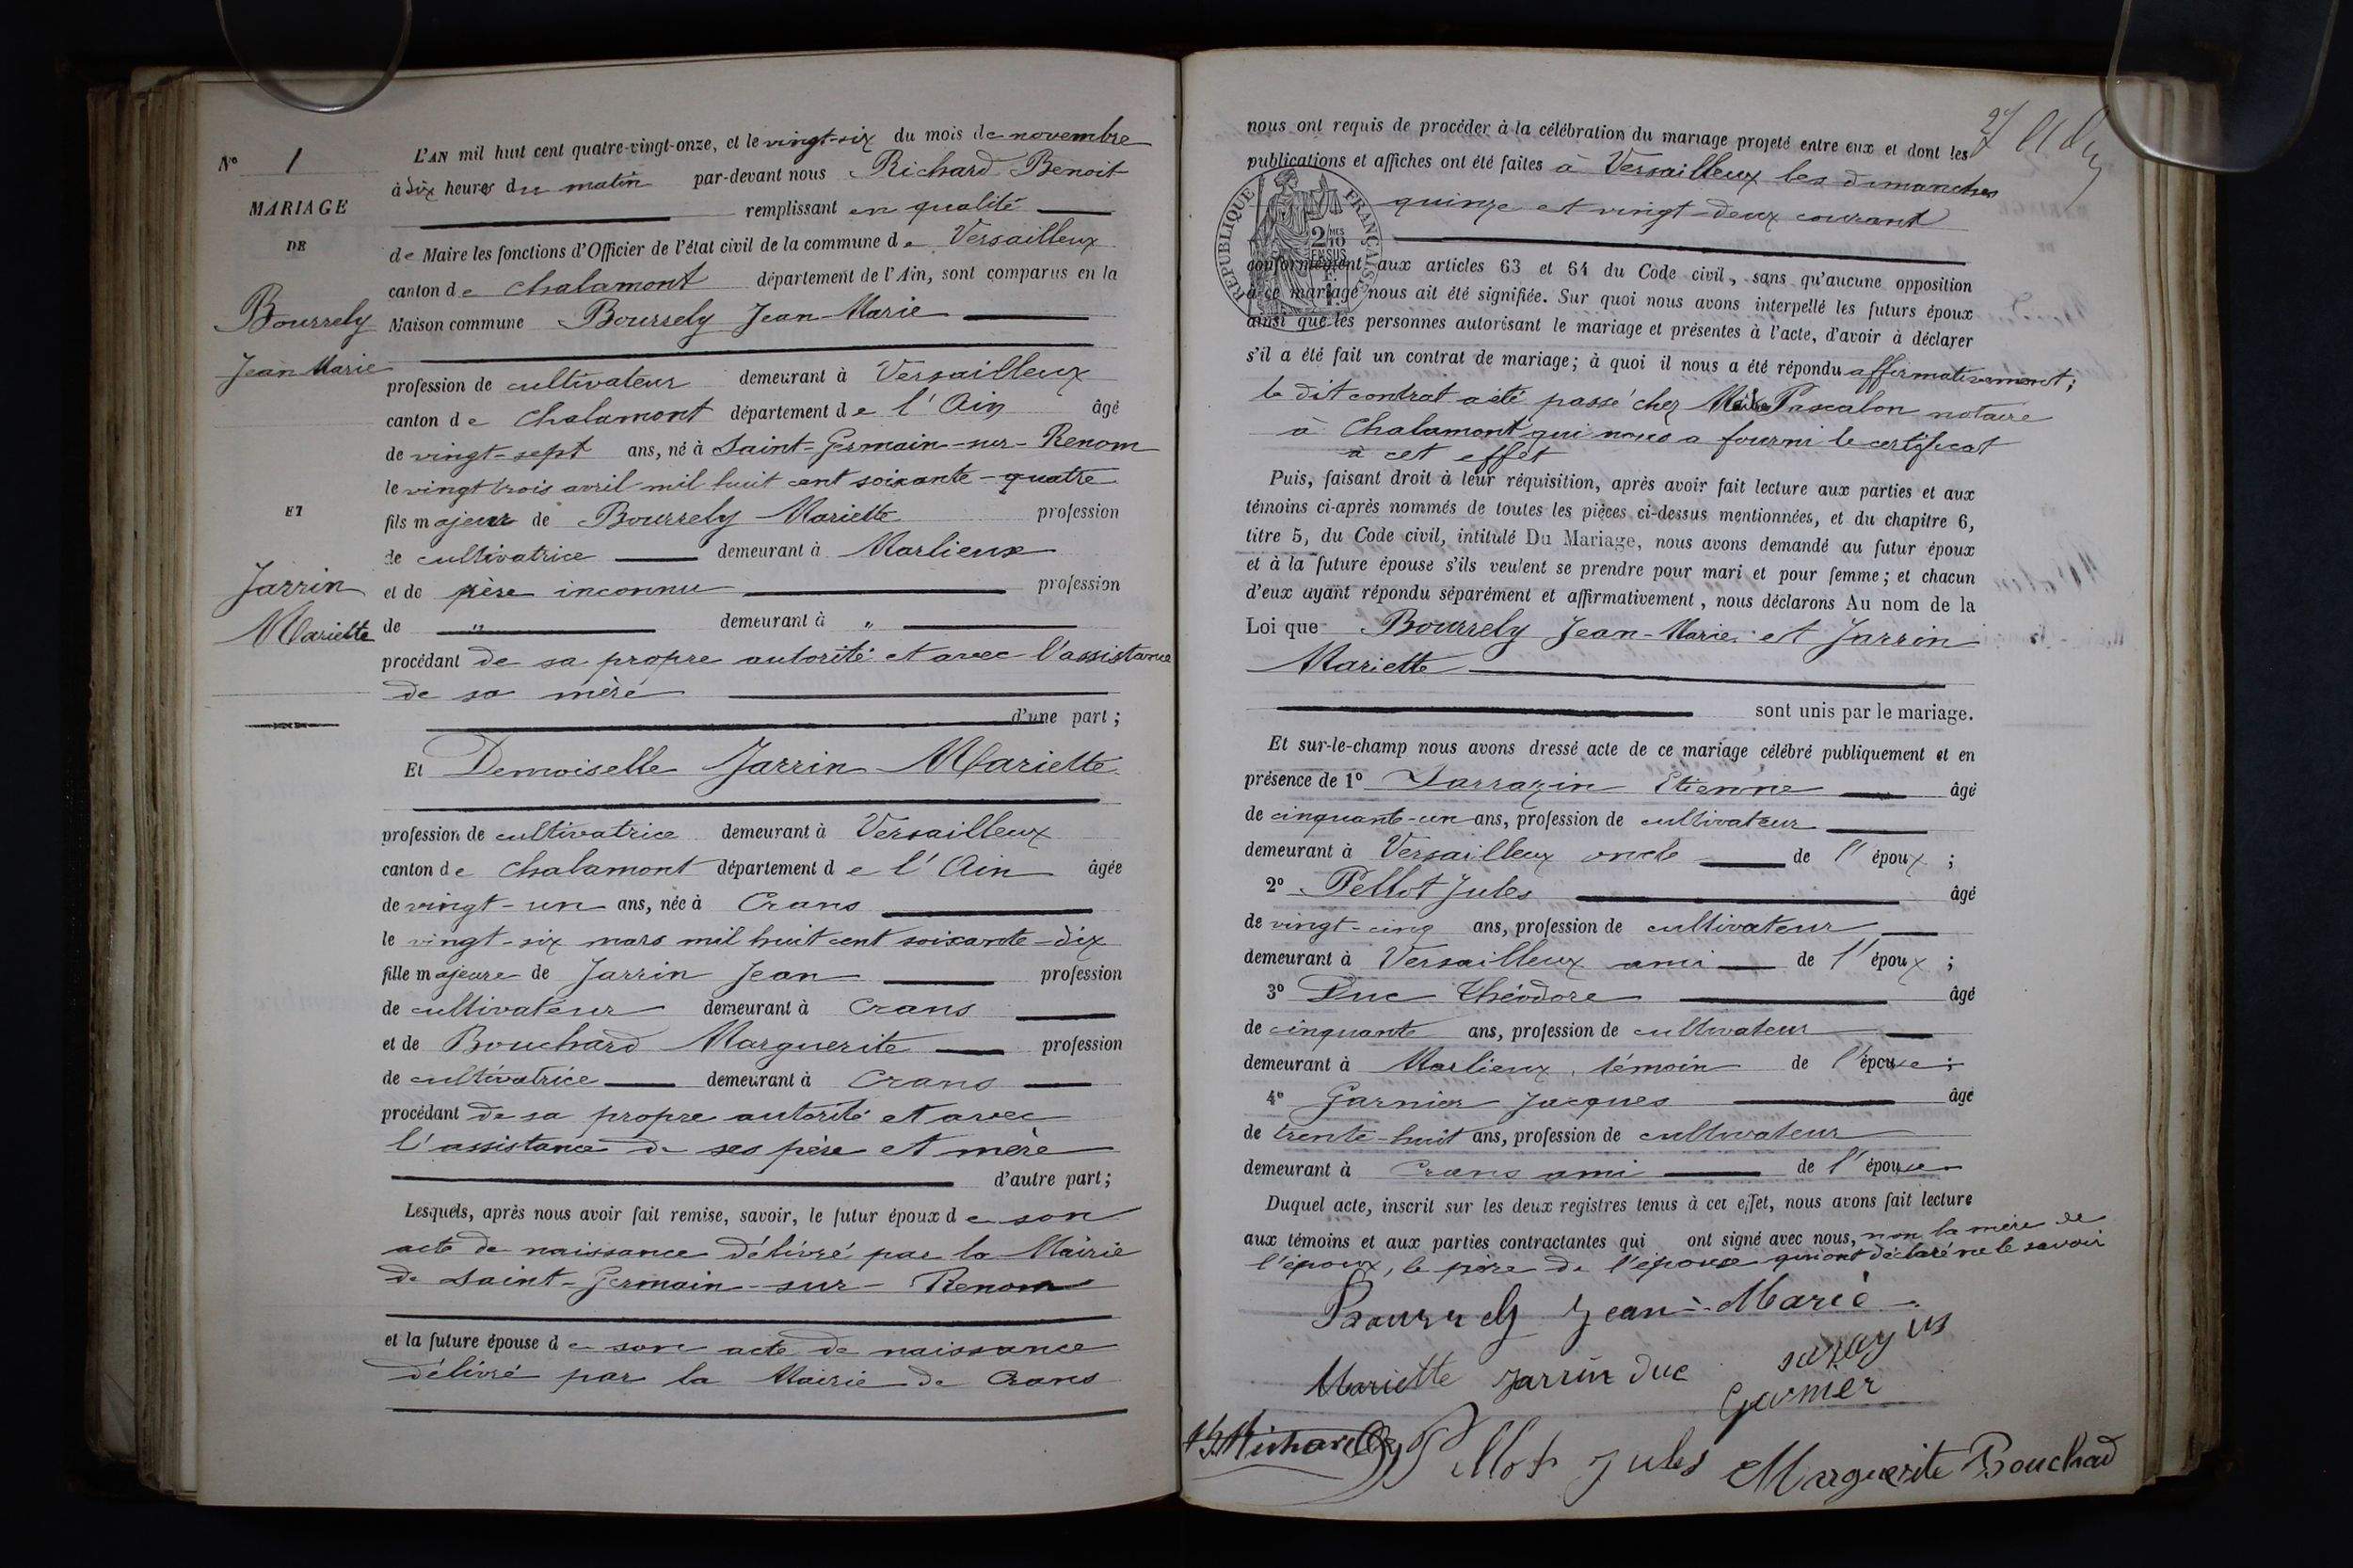 N° 1
MARIAGE
DE
Boursely
Jean Marie
ET
Jarrin
Mariette
L'AN mil huit cent quatre-vingt-onze, et le vingt-six du mois de novembre
à dix heures du matin par-devant nous Richard Benoit
remplissant en qualité
de Maire les fonctions d'Officier de l'état civil de la commune de Versailleux
canton de Chalamont département de l'Ain, sont comparus en la
Maison commune Boursely Jean-Marie
profession de cultivateur demeurant à Versailleux
canton de Chalamont département de l'Ain âgé
de vingt-sept ans, né à Saint-Germain-sur-Renom
le vingt trois avril mil huit cent soixante-quatre
fils majeur de Boursely Mariette profession
de cultivatrice demeurant à Marlieux
et de père inconnu profession
de " demeurant à "
procédant de sa propre autorité et avec l'assistance
de sa mère
d'une part;
Et Demoiselle Jarrin Mariette
profession de cultivatrice demeurant à Versailleux
canton de Chalamont département de l'Ain âgée
de vingt-un ans, née à Crans
le vingt-six mars mil huit cent soixante-dix
fille majeure de Jarrin Jean profession
de cultivateur demeurant à Crans
et de Bouchard Marguerite profession
de cultivatrice demeurant à Crans
procédant de sa propre autorité et avec
l'assistance de ses père et mère
d'autre part;
Lesquels, après nous avoir fait remise, savoir, le futur époux de son
acte de naissance délivré par la Mairie
de Saint-Germain-sur-Renom
et la future épouse de son acte de naissance
délivré par la Mairie de Crans
nous ont requis de procéder à la célébration du mariage projeté entre eux et dont les
publications et affiches ont été faites à Versailleux les dimanches
quinze et vingt-deux courant
RÉPUBLIQUE FRANÇAISE
2 MES 10 EN SUS
conformément aux articles 63 et 64 du Code civil, sans qu'aucune opposition
à ce mariage nous ait été signifiée. Sur quoi nous avons interpellé les futurs époux
ainsi que les personnes autorisant le mariage et présentes à l'acte, d'avoir à déclarer
s'il a été fait un contrat de mariage; à quoi il nous a été répondu affirmativement;
le dit contrat a été passé chez Maître Pascalon notaire
à Chalamont qui nous a fourni le certificat
à cet effet
Puis, faisant droit à leur réquisition, après avoir fait lecture aux parties et aux
témoins ci-après nommés de toutes les pièces ci-dessus mentionnées, et du chapitre 6,
titre 5, du Code civil, intitulé Du Mariage, nous avons demandé au futur époux
et à la future épouse s'ils veulent se prendre pour mari et pour femme; et chacun
d'eux ayant répondu séparément et affirmativement, nous déclarons Au nom de la
Loi que Boursely Jean-Marie et Jarrin
Mariette
sont unis par le mariage.
Et sur-le-champ nous avons dressé acte de ce mariage célébré publiquement et en
présence de 1° Sarrazin Etienne âgé
de cinquante-un ans, profession de cultivateur
demeurant à Versailleux oncle de l'époux;
2° Pellot Jules âgé
de vingt-cinq ans, profession de cultivateur
demeurant à Versailleux ami de l'époux;
3° Duc Théodore âgé
de cinquante ans, profession de cultivateur
demeurant à Marlieux témoin de l'épouse;
4° Garnier Jacques âgé
de trente-huit ans, profession de cultivateur
demeurant à Crans ami de l'épouse
Duquel acte, inscrit sur les deux registres tenus à cet effet, nous avons fait lecture
aux témoins et aux parties contractantes qui ont signé avec nous, non la mère de
l'époux, le père de l'épouse qui ont déclaré ne le savoir
Boursely Jean-Marie
Mariette Jarrin Duc
Garnier
Richard Pellot Jules Marguerite Bouchad